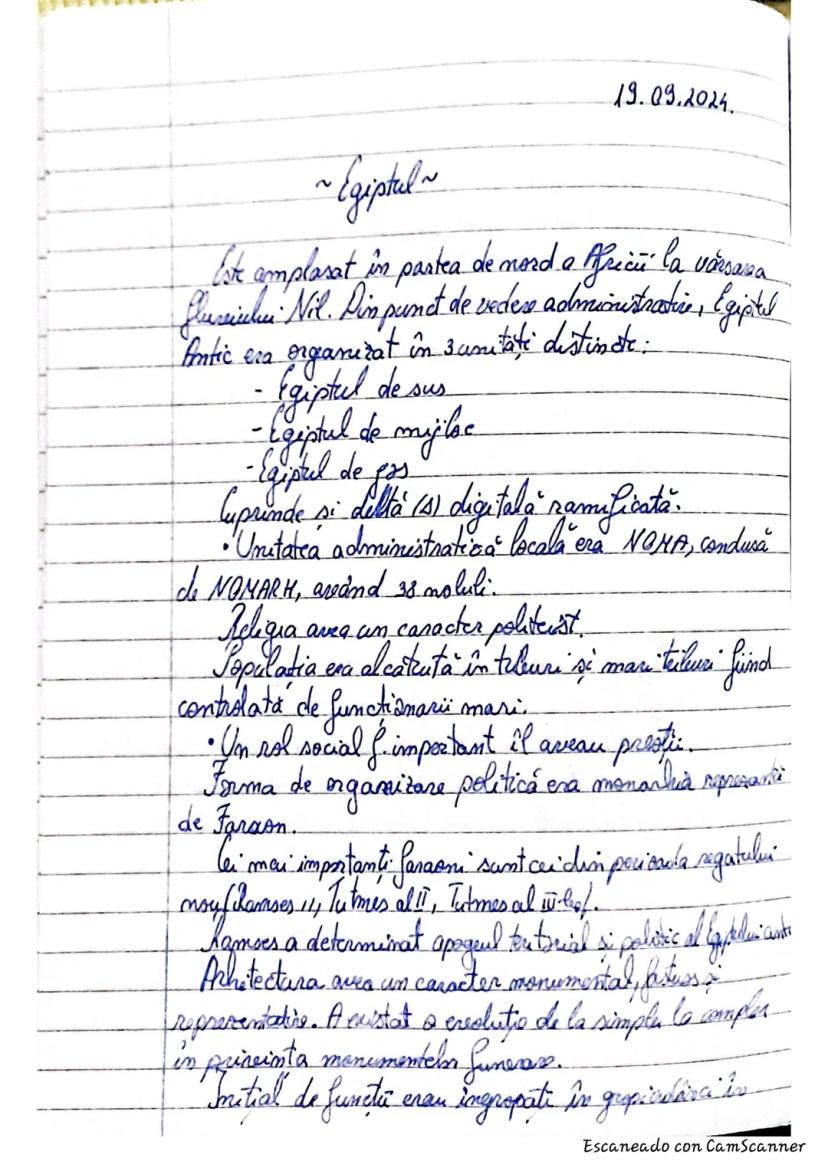 19.09.2024.
~Egiptul~
Este amplasat în partea de nord a Africii la vărsarea
fluviului Nil. Din punct de vedere administrativ, Egiptul
Antic era organizat în 3 unități distincte:
- Egiptul de sus
- Egiptul de mijloc
- Egiptul de jos
Cuprinde și deltă (Δ) digitală ramificată.
• Unitatea administrativă locală era NOMA, condusă
de NOMARH, având 38
Religia avea un caracter politeist.
Populația era alcătuită în triburi și mari triburi fiind
controlată de funcționarii mari.
• Un rol social f. important îl aveau preoții.
Forma de organizare politică era monarhia
de Faraon.
Cei mai importanți faraoni sunt cei din perioada regatului
nou Ramses II, Tutmes al II, Tutmes al III-lea
Ramses a determinat apogeul teritorial și politic al Egiptului
Arhitectura avea un caracter monumental, fastuos și
reprezentativ. A existat o evoluție de la simplu la complex
în privința monumentelor funerare.
Inițial erau îngropați în în
Escaneado con CamScanner